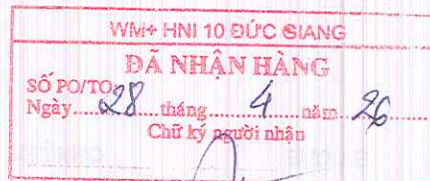 WM+ HNI 10 ĐỨC GIANG
ĐÃ NHẬN HÀNG
SỐ PO/TO
Ngày......28....tháng......4......năm...26......
Chữ ký người nhận